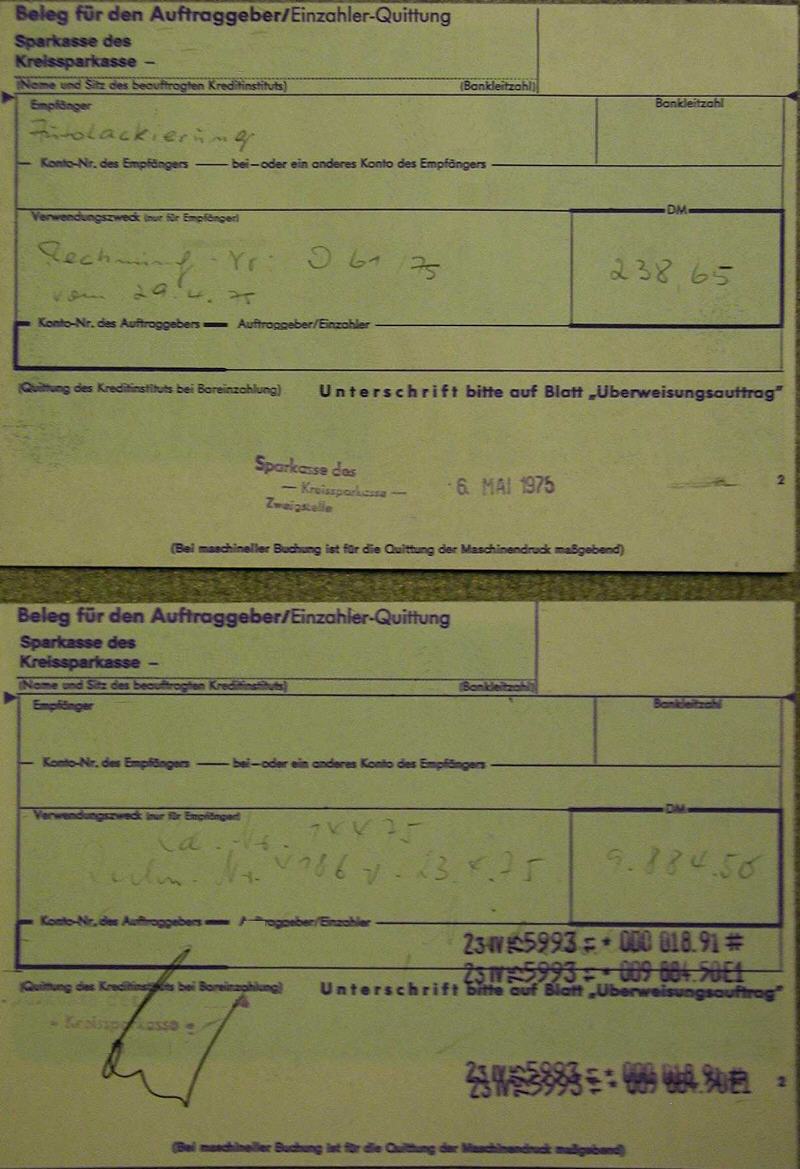 Beleg für den Auftraggeber/Einzahler-Quittung
Sparkasse des
Kreissparkasse –
(Name und Sitz des beauftragten Kreditinstituts) (Bankleitzahl)
Empfänger Bankleitzahl
Konto-Nr. des Empfängers bei – oder ein anderes Konto des Empfängers
Verwendungszweck (nur für Empfänger) DM
Rechnung - Nr: D 61 / 75 238,65
vom 29.4.75
Konto-Nr. des Auftraggebers Auftraggeber/Einzahler
(Quittung des Kreditinstituts bei Bareinzahlung) Unterschrift bitte auf Blatt „Überweisungsauftrag"
Sparkasse des
— Kreissparkasse —
Zweigstelle
6. MAI 1975
2
(Bei maschineller Buchung ist für die Quittung der Maschinendruck maßgebend)
Beleg für den Auftraggeber/Einzahler-Quittung
Sparkasse des
Kreissparkasse –
(Name und Sitz des beauftragten Kreditinstituts) (Bankleitzahl)
Empfänger Bankleitzahl
Konto-Nr. des Empfängers bei – oder ein anderes Konto des Empfängers
Verwendungszweck (nur für Empfänger) DM
9.884.50
Konto-Nr. des Auftraggebers /Einzahler
23 IV 5993 = * 000 018.91 #
23 IV 5993 = * 009 884.50E1
(Quittung des Kreditinstituts bei Bareinzahlung) Unterschrift bitte auf Blatt „Überweisungsauftrag"
- Kreissparkasse -
2
(Bei maschineller Buchung ist für die Quittung der Maschinendruck maßgebend)